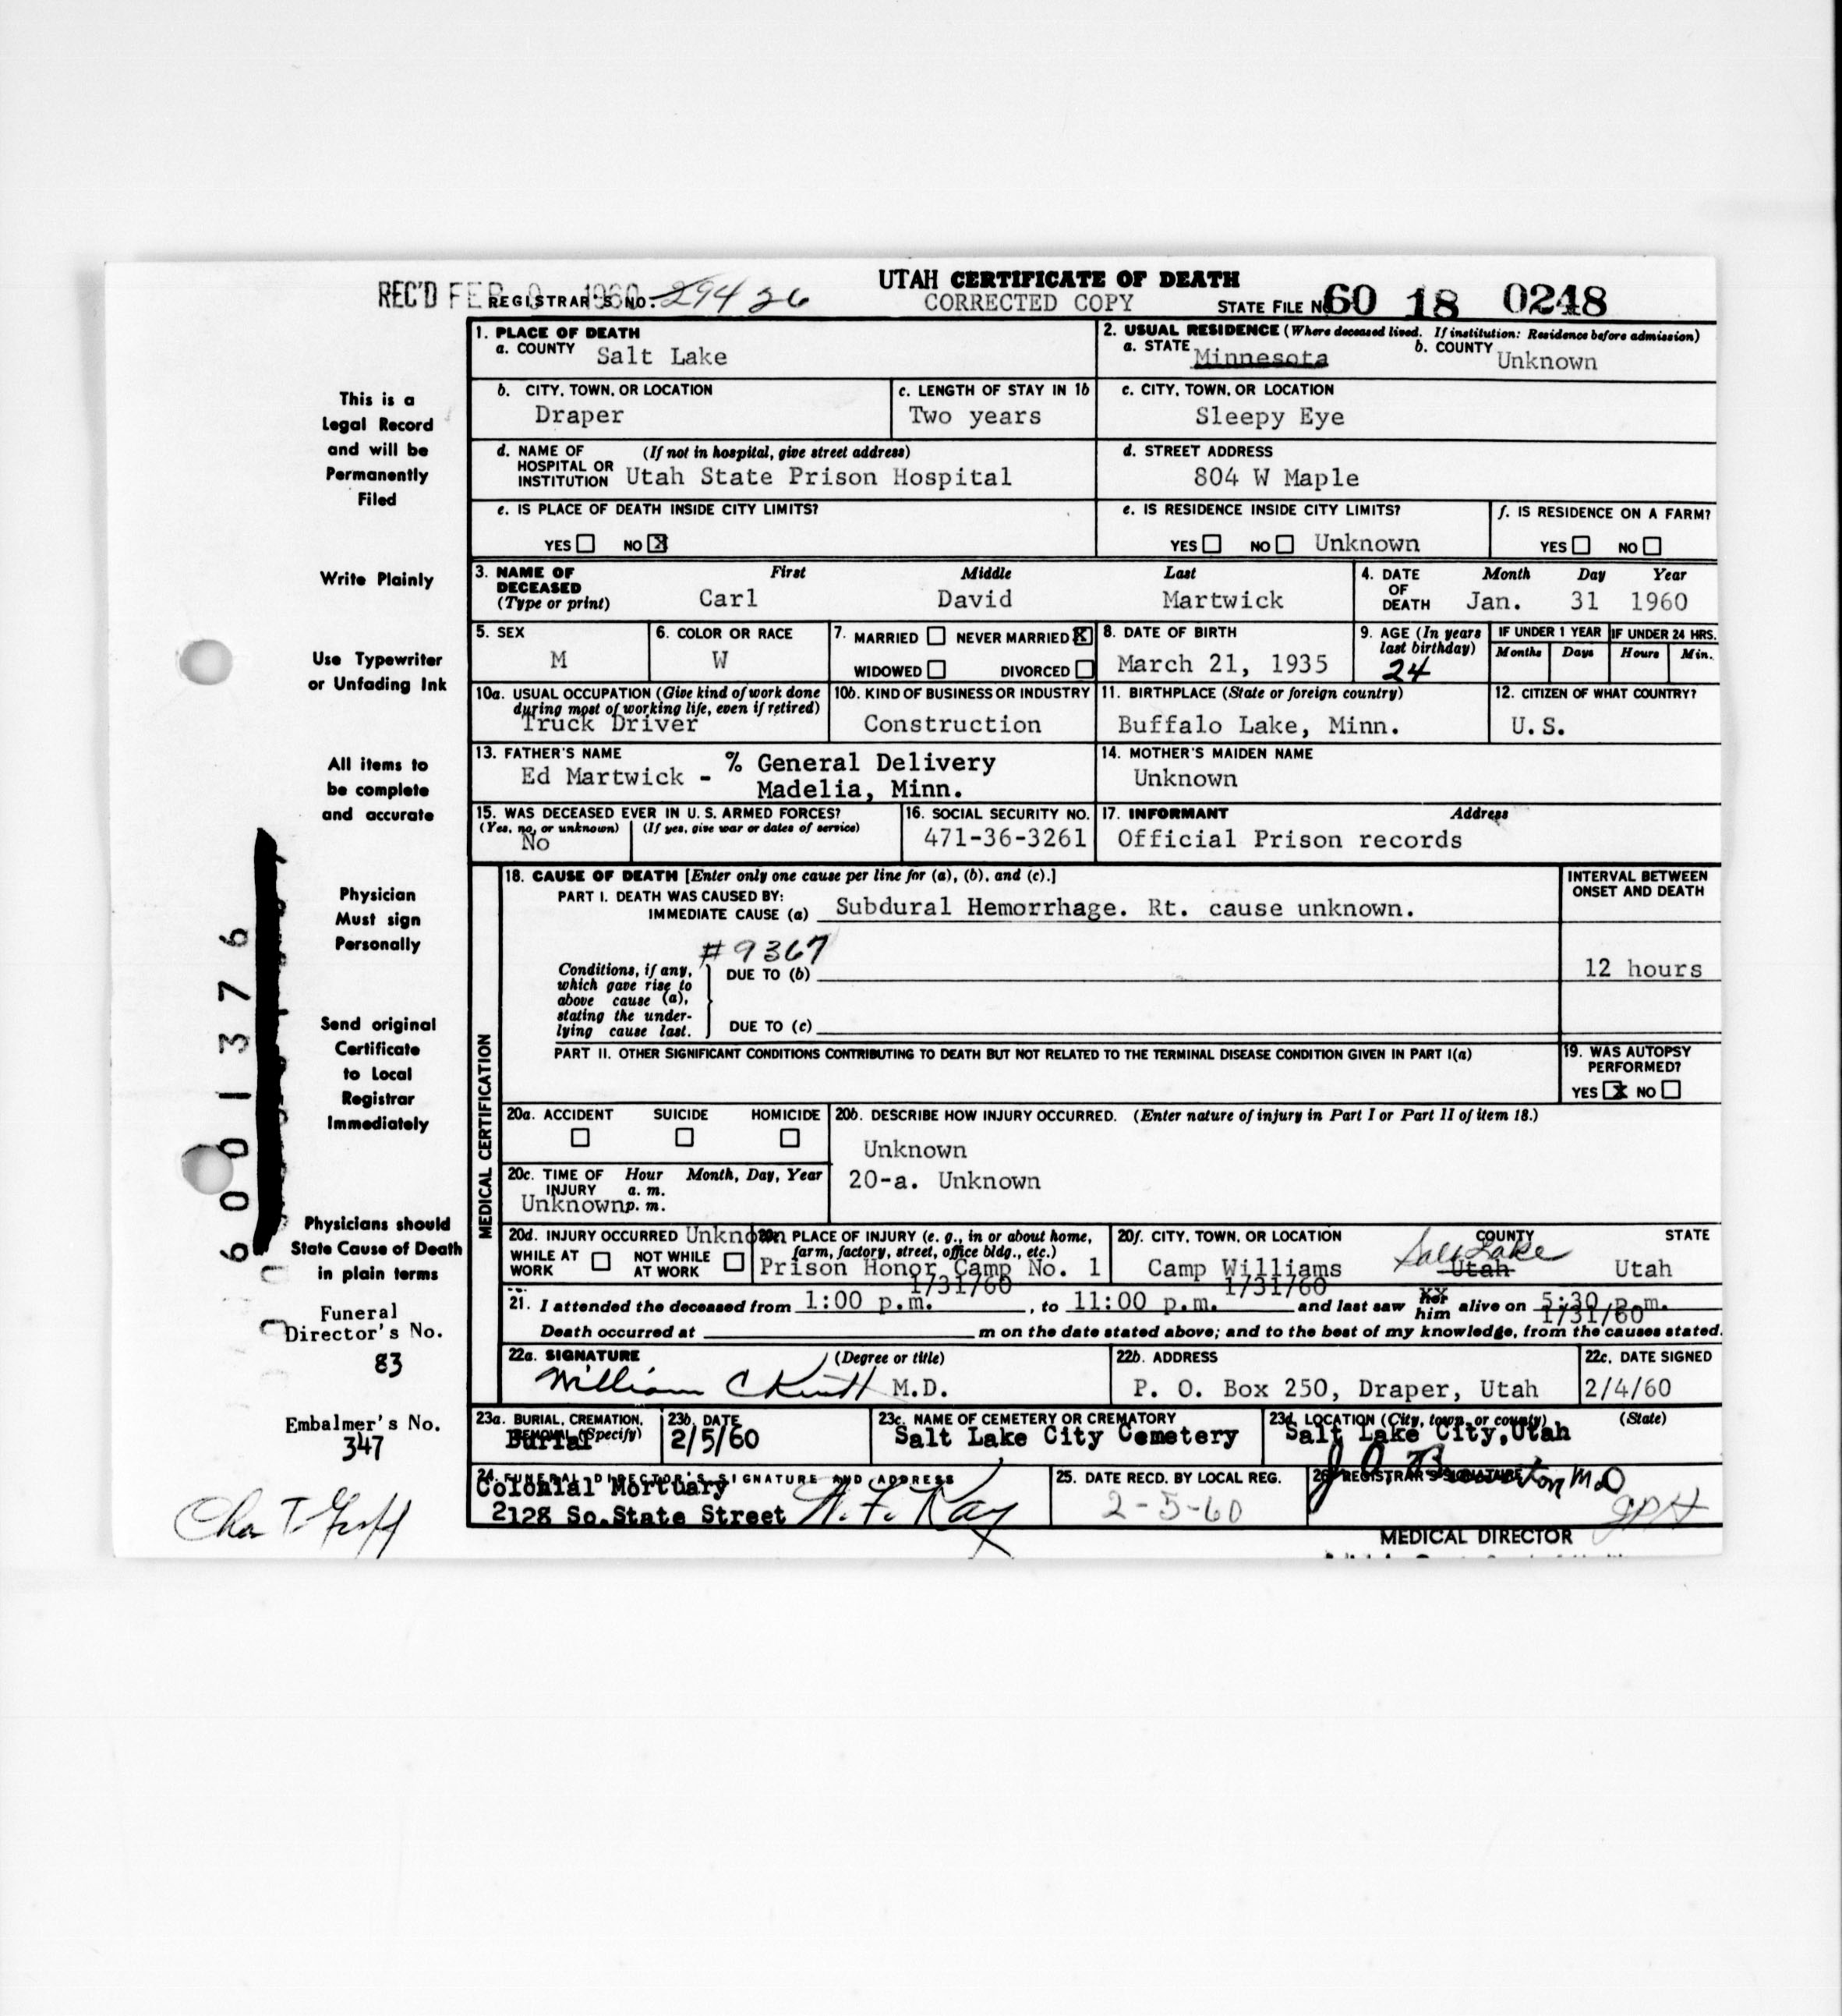 UTAH CERTIFICATE OF DEATH
REC'D FEB 1960 REGISTRAR'S NO. 294 26 CORRECTED COPY STATE FILE NO. 60 18 0248
1. PLACE OF DEATH
a. COUNTY Salt Lake
2. USUAL RESIDENCE (Where deceased lived. If institution: Residence before admission)
a. STATE Minnesota b. COUNTY Unknown
b. CITY, TOWN, OR LOCATION
Draper
c. LENGTH OF STAY IN 1b
Two years
c. CITY, TOWN, OR LOCATION
Sleepy Eye
d. NAME OF HOSPITAL OR INSTITUTION (If not in hospital, give street address)
Utah State Prison Hospital
d. STREET ADDRESS
804 W Maple
e. IS PLACE OF DEATH INSIDE CITY LIMITS?
YES NO X
e. IS RESIDENCE INSIDE CITY LIMITS?
YES NO Unknown
f. IS RESIDENCE ON A FARM?
YES NO
3. NAME OF DECEASED (Type or print) First Middle Last
Carl David Martwick
4. DATE OF DEATH Month Day Year
Jan. 31 1960
5. SEX
M
6. COLOR OR RACE
W
7. MARRIED NEVER MARRIED X
WIDOWED DIVORCED
8. DATE OF BIRTH
March 21, 1935
9. AGE (In years last birthday)
24
IF UNDER 1 YEAR IF UNDER 24 HRS.
Months Days Hours Min.
10a. USUAL OCCUPATION (Give kind of work done during most of working life, even if retired)
Truck Driver
10b. KIND OF BUSINESS OR INDUSTRY
Construction
11. BIRTHPLACE (State or foreign country)
Buffalo Lake, Minn.
12. CITIZEN OF WHAT COUNTRY?
U.S.
13. FATHER'S NAME
Ed Martwick - % General Delivery
Madelia, Minn.
14. MOTHER'S MAIDEN NAME
Unknown
15. WAS DECEASED EVER IN U. S. ARMED FORCES?
(Yes, no, or unknown) (If yes, give war or dates of service)
No
16. SOCIAL SECURITY NO.
471-36-3261
17. INFORMANT Address
Official Prison records
MEDICAL CERTIFICATION
18. CAUSE OF DEATH [Enter only one cause per line for (a), (b), and (c).]
PART I. DEATH WAS CAUSED BY:
IMMEDIATE CAUSE (a) Subdural Hemorrhage. Rt. cause unknown.
INTERVAL BETWEEN ONSET AND DEATH
#9367
Conditions, if any, which gave rise to above cause (a), stating the underlying cause last.
DUE TO (b)
12 hours
DUE TO (c)
PART II. OTHER SIGNIFICANT CONDITIONS CONTRIBUTING TO DEATH BUT NOT RELATED TO THE TERMINAL DISEASE CONDITION GIVEN IN PART I(a)
19. WAS AUTOPSY PERFORMED?
YES X NO
20a. ACCIDENT SUICIDE HOMICIDE
20b. DESCRIBE HOW INJURY OCCURRED. (Enter nature of injury in Part I or Part II of item 18.)
Unknown
20-a. Unknown
20c. TIME OF INJURY Hour Month, Day, Year
a. m.
Unknown p. m.
20d. INJURY OCCURRED Unknown
WHILE AT WORK NOT WHILE AT WORK
20e. PLACE OF INJURY (e. g., in or about home, farm, factory, street, office bldg., etc.)
Prison Honor Camp No. 1
20f. CITY, TOWN, OR LOCATION COUNTY STATE
Camp Williams Salt Lake Utah Utah
21. I attended the deceased from 1:00 p.m. 1/31/60, to 11:00 p.m. 1/31/60 and last saw her him alive on 5:30 p.m. 1/31/60
Death occurred at m on the date stated above; and to the best of my knowledge, from the causes stated.
22a. SIGNATURE (Degree or title)
William C M.D.
22b. ADDRESS
P. O. Box 250, Draper, Utah
22c. DATE SIGNED
2/4/60
23a. BURIAL, CREMATION, REMOVAL (Specify)
Burial
23b. DATE
2/5/60
23c. NAME OF CEMETERY OR CREMATORY
Salt Lake City Cemetery
23d. LOCATION (City, town, or county) (State)
Salt Lake City, Utah
24. FUNERAL DIRECTOR'S SIGNATURE AND ADDRESS
Colonial Mortuary
2128 So. State Street
25. DATE RECD. BY LOCAL REG.
2-5-60
26. REGISTRAR'S SIGNATURE
MEDICAL DIRECTOR
This is a
Legal Record
and will be
Permanently
Filed
Write Plainly
Use Typewriter
or Unfading Ink
All items to
be complete
and accurate
Physician
Must sign
Personally
Send original
Certificate
to Local
Registrar
Immediately
Physicians should
State Cause of Death
in plain terms
Funeral
Director's No.
83
Embalmer's No.
347
6001376